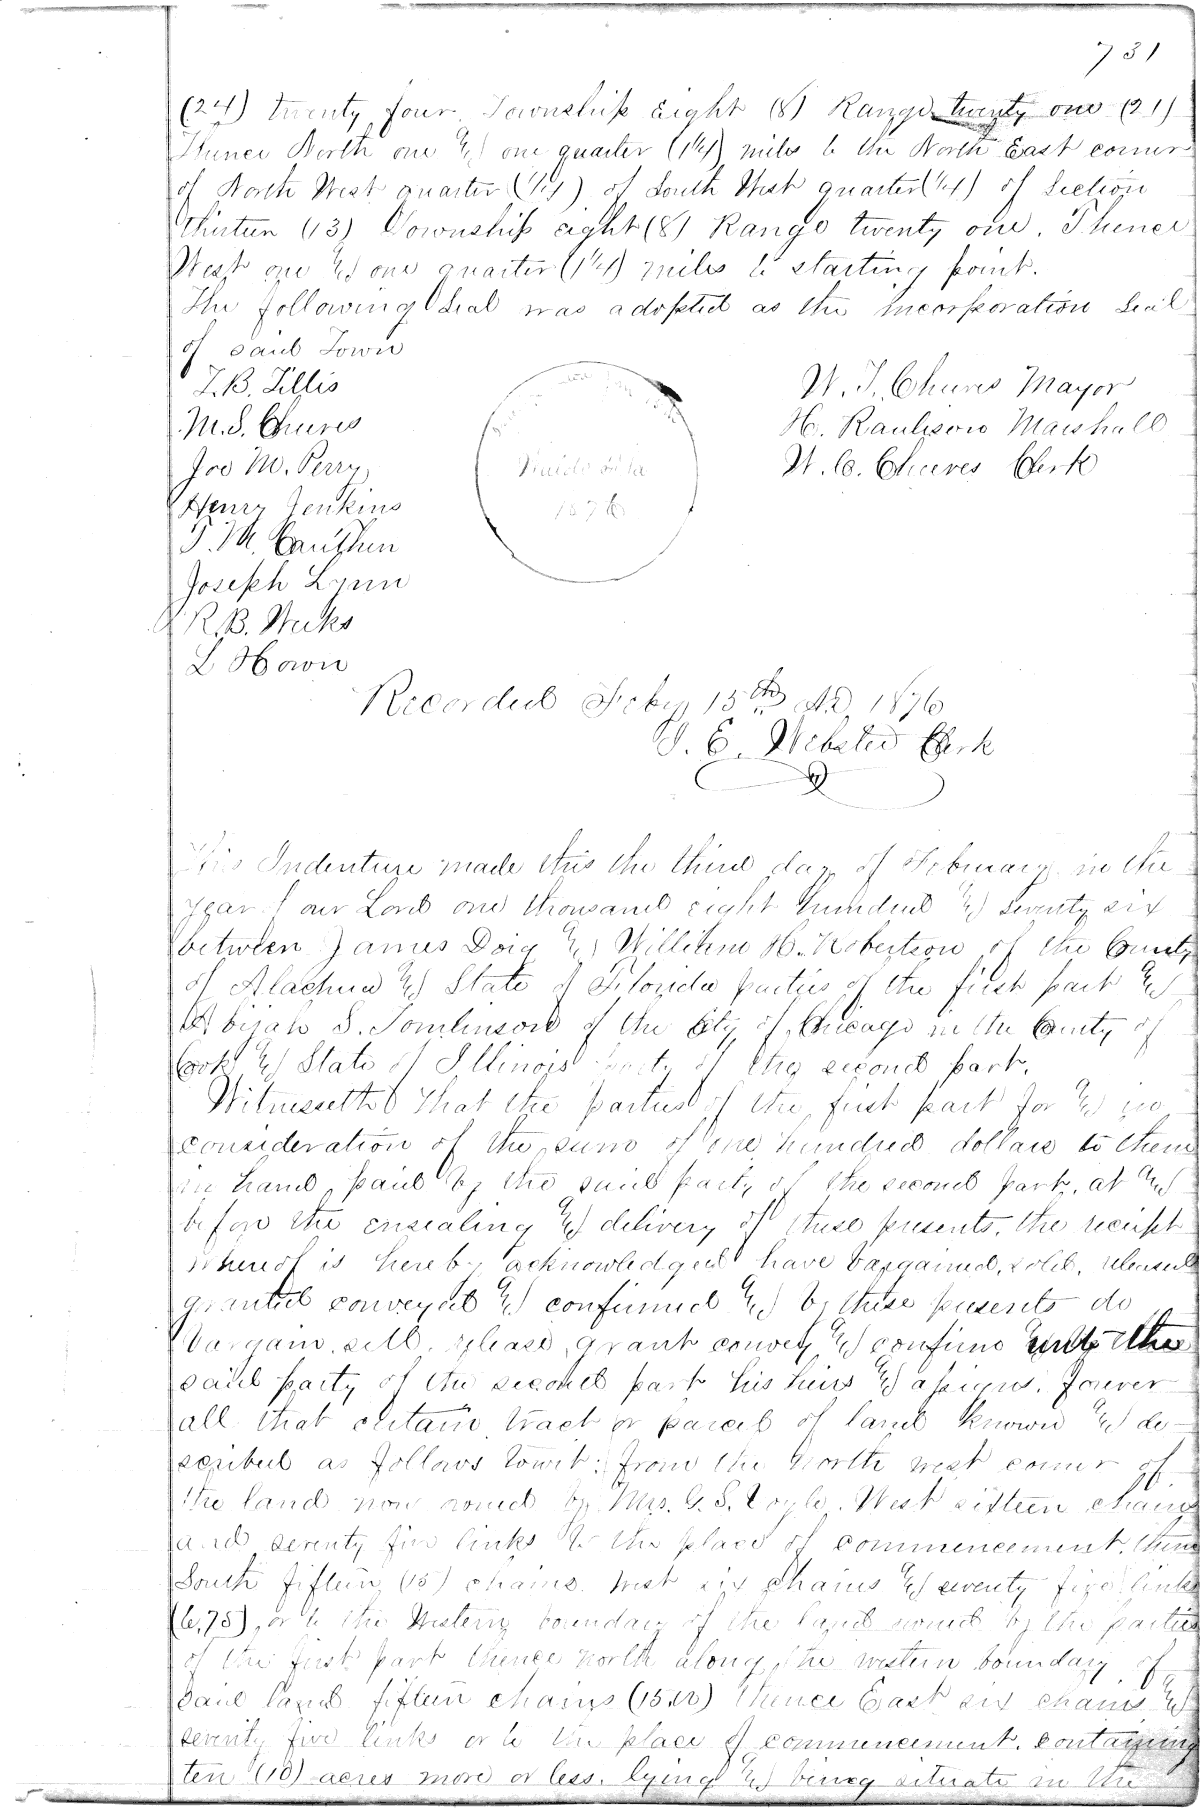 731
(24) twenty four Township Eight (8) Range twenty one (21)
Thence North one & one quarter (1 1/4) miles to the North East corner
of North West quarter (1/4) of South West quarter (1/4) of Section
thirteen (13) Township eight (8) Range twenty one. Thence
West one & one quarter (1 1/4) miles to starting point.
The following Seal was adopted as the incorporation Seal
of said Town
T. B. Tillis
M. S. Cheeves
Joe M. Perry
Henry Jenkins
T. M. Cauthen
Joseph Lynn
R. B. Weeks
L Hown
Waldo Fla
1876
W. T. Cheeves Mayor
H. Raulison Marshall
W. C. Cheeves Clerk
Recorded Feby 15th AD 1876
J. E. Webster Clerk
This Indenture made this the third day of February in the
year of our Lord one thousand eight hundred & seventy six
between James Doig & William H. Robertson of the County
of Alachua & State of Florida parties of the first part &
Abijah S. Tomlinson of the City of Chicago in the County of
Cook & State of Illinois party of the second part.
Witnesseth that the parties of the first part for & in
consideration of the sum of one hundred dollars to them
in hand paid by the said party of the second part, at &
before the ensealing & delivery of these presents, the receipt
whereof is hereby acknowledged have bargained, sold, released
granted conveyed & confirmed & by these presents do
bargain, sell, release, grant convey & confirm unto the
said party of the second part his heirs & assigns, forever
all that certain tract or parcel of land known & de-
scribed as follows towit: from the North west corner of
the land now owned by Mrs. G. S. Coyle, West sixteen chains
and seventy five links to the place of commencement, thence
South fifteen (15) chains west six chains & seventy five links
(6.75), or to the Western boundary of the land owned by the parties
of the first part thence north along the western boundary of
said land fifteen chains (15.00) thence East six chains &
seventy five links or to the place of commencement, containing
ten (10) acres more or less, lying & being situate in the